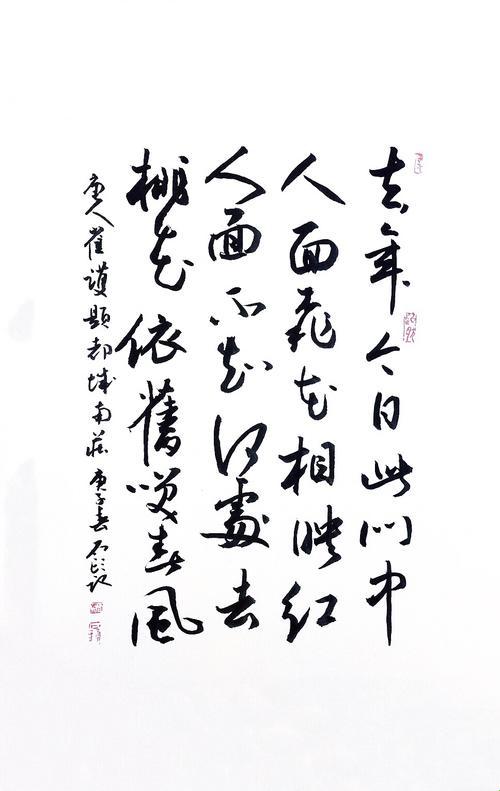 去年今日此門中
人面桃花相映紅
人面不知何處去
桃花依舊笑春風
唐人崔護題都城南莊 庚子春